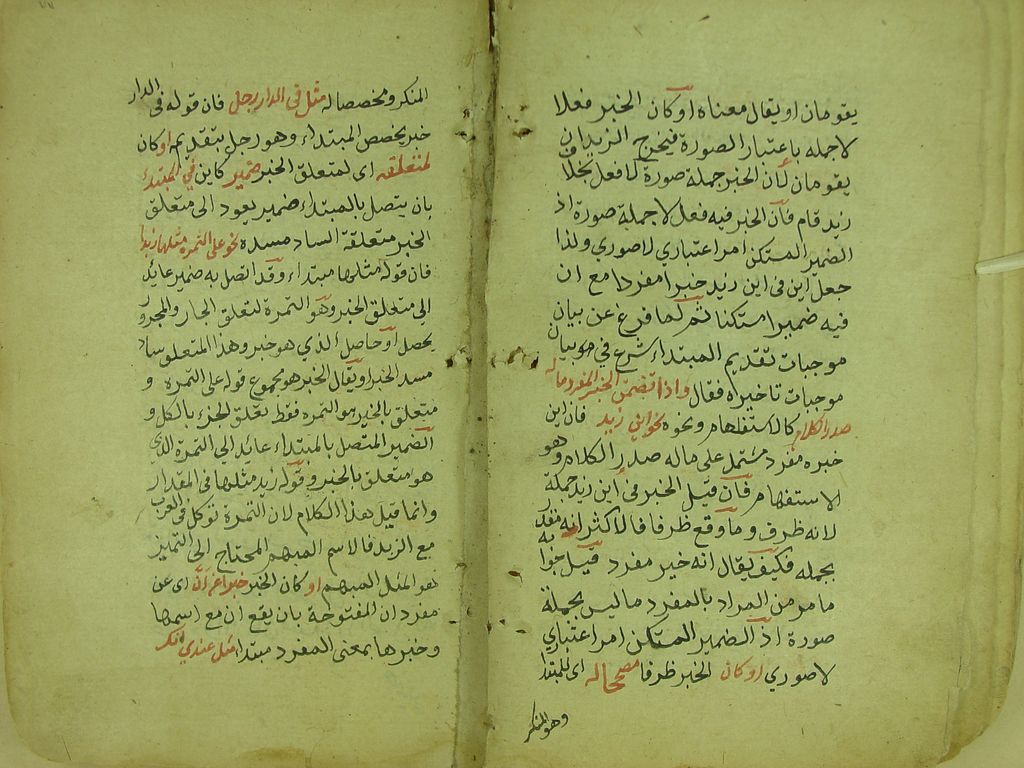 يقومان او يقال معناه او كان الخبر فعلا
لا جمله باعتبار الصورة فيخرج الزيدان
يقومان لأن الخبر جملة صورة لا فعل بخلاف
زيد قام فان الخبر فيه فعل لا جملة صورة اذ
الضمير المستكن امر اعتباري لا صوري ولذا
جعل اين في اين زيد خبرا مفردا مع ان
فيه ضميرا مستكنا ثم لما فرغ عن بيان
موجبات تقديم المبتداء شرع في بيان
موجبات تاخيره فقال واذا تضمن الخبر المفرد ماله
صدر الكلام كالاستفهام ونحوه نحو اين زيد فان اين
خبره مفرد مشتمل على ماله صدر الكلام وهو
الاستفهام فان قيل الخبر في اين زيد جملة
لانه ظرف وما وقع ظرفا فالاكثر انه مقدر
بجمله فكيف يقال انه خبر مفرد قيل جوابه
ما مر من المراد بالمفرد ما ليس بجملة
صورة اذ الضمير المستكن امر اعتباري
لا صوري او كان الخبر ظرفا مصححا له اى للمبتدا
وهو المنكر
المنكر ومخصصا له مثل في الدار رجل فان قوله في الدار
خبر يخصص المبتداء وهو رجل بتقديمه او كان
لمتعلقه اى لمتعلق الخبر ضمير كاين في المبتداء
بان يتصل بالمبتداء ضمير يعود الى متعلق
الخبر متعلقة الساد مسده نحو على التمرة مثلها زبدا
فان قوله مثلها مبتداء وقد اتصل به ضمير عايد
الى متعلق الخبر وهو التمرة لتعلق الجار والمجرور
يحصل او حاصل الذي هو خبر وهذا المتعلق ساد
مسد الخبر او يقال الخبر هو مجموع قوله على التمرة و
متعلق بالخبر هو التمره فقط تعلق الجزء بالكل و
الضمير المتصل بالمبتداء عائد الى التمرة الذي
هو متعلق بالخبر وقوله زبد مثلها في المقدار
وانما قيل هذا الكلام لان التمرة توكل في العرب
مع الزبد فالاسم المبهم المحتاج الى التمييز
هو المثل المبهم او كان الخبر خبرا عن ان اى عن
مفرد ان المفتوحة بان يقع ان مع اسمها
وخبرها بمعنى المفرد مبتدا مثل عندي انك